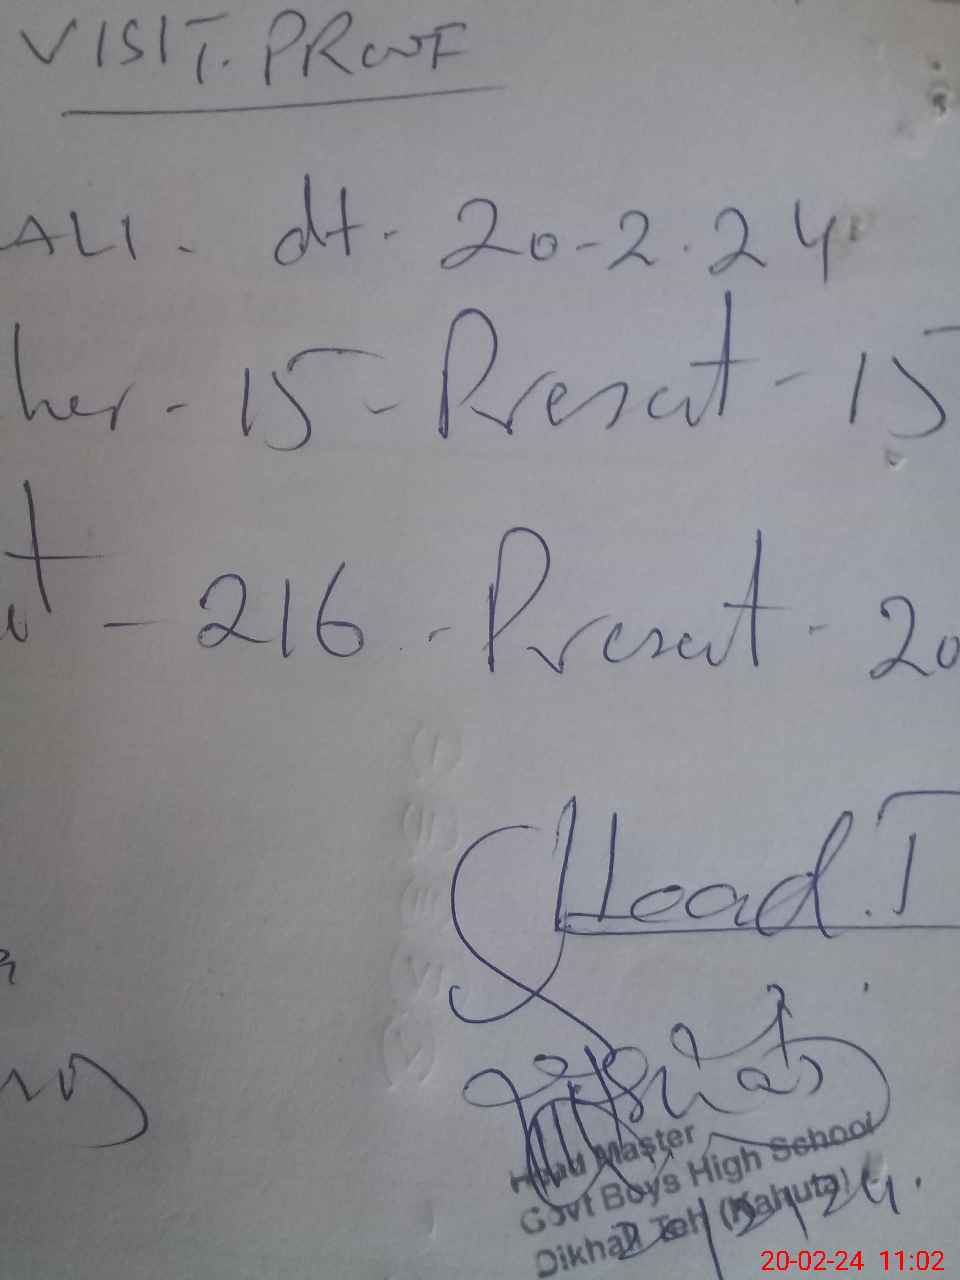 VISIT. PROOF
ALI - dt - 20-2.24
her - 15 - Present - 15
t - 216 - Present - 20
Head. T
Head Master
Govt Boys High School
Dikhali Teh (Kahuta)
20-02-24 11:02